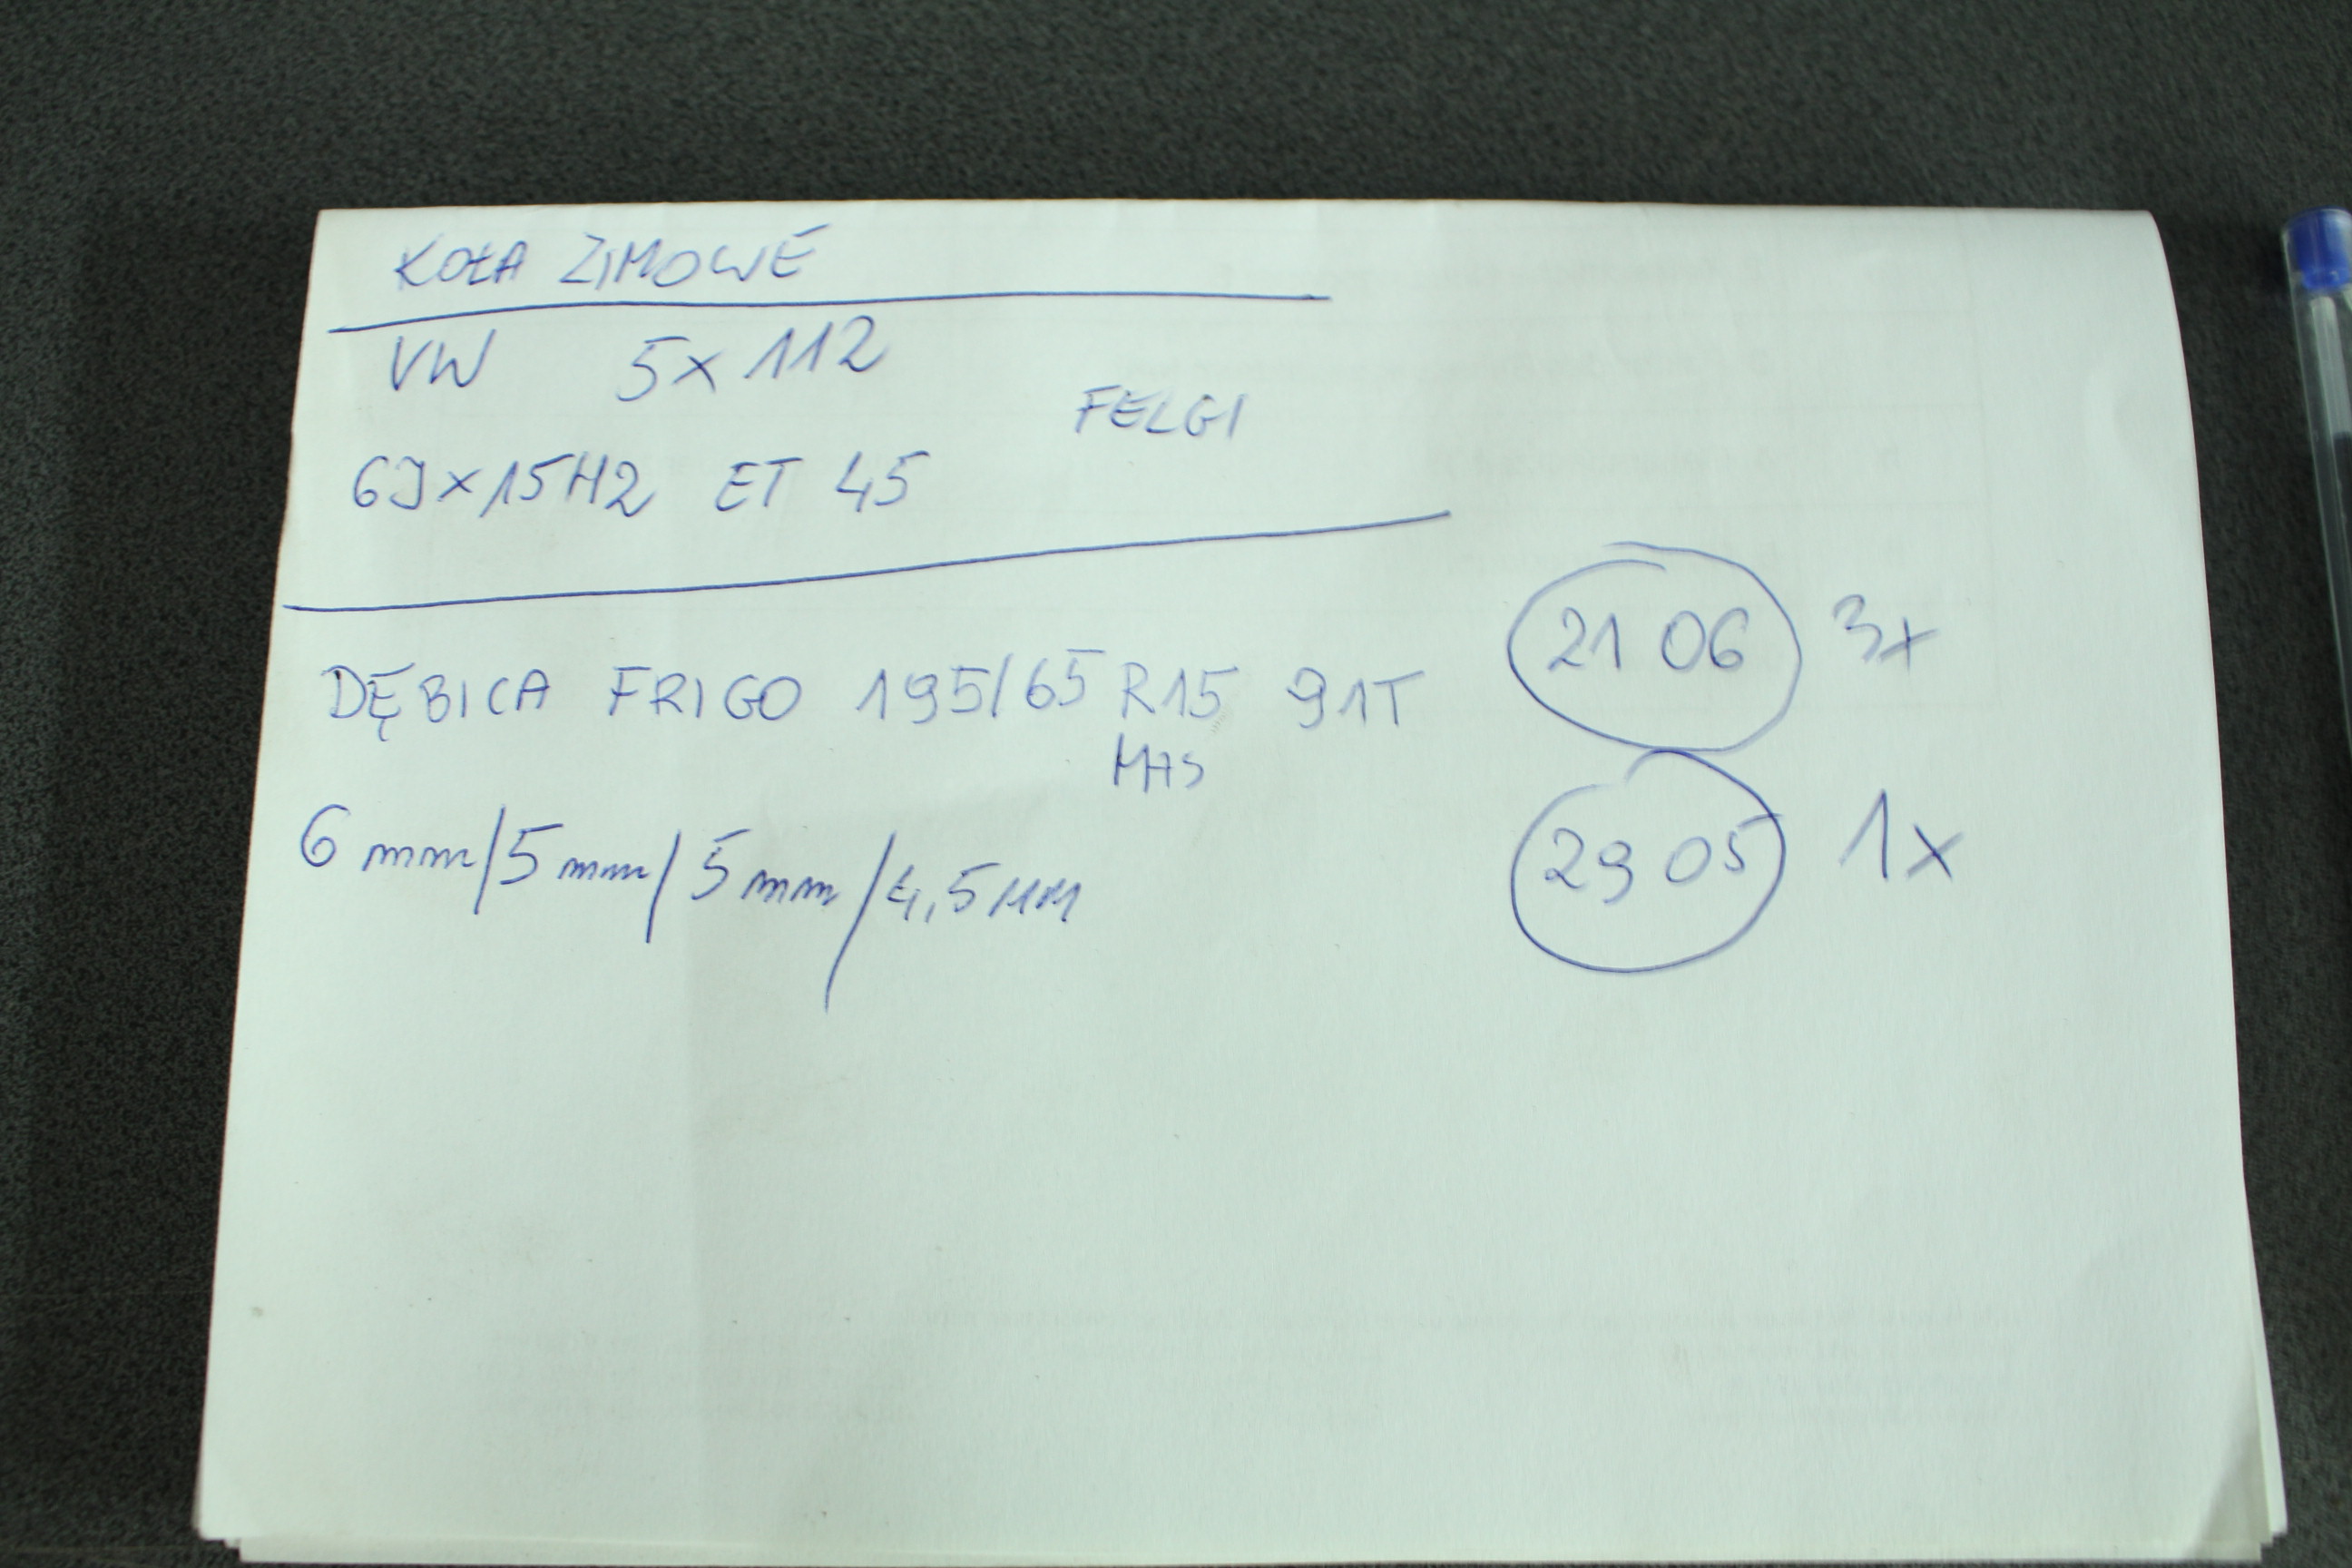 KOŁA ZIMOWE
VW 5x112
FELGI
6Jx15H2 ET 45
DĘBICA FRIGO 195/65 R15 91T
M+S
21 06 3x
29 05 1x
6 mm/5 mm/5 mm/4,5 MM